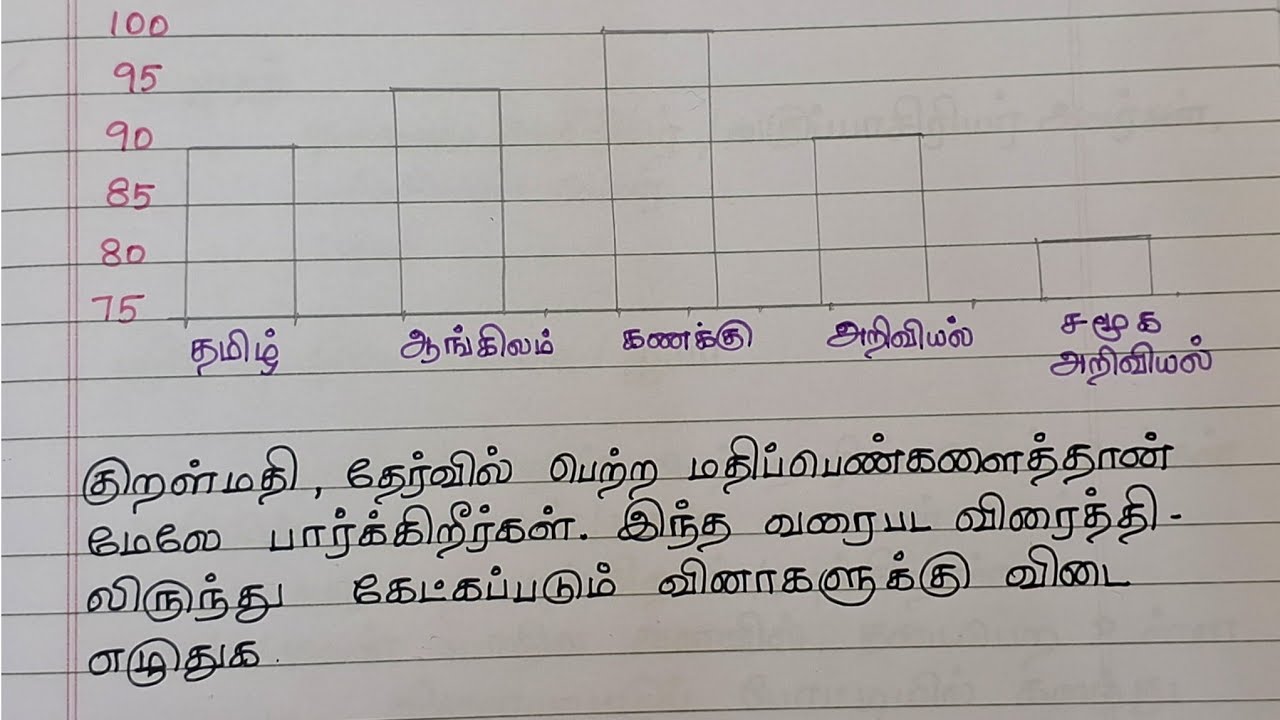 100
95
90
85
80
75
தமிழ் ஆங்கிலம் கணக்கு அறிவியல் சமூக அறிவியல்
குறள்மதி, தேர்வில் பெற்ற மதிப்பெண்களைத்தான்
மேலே பார்க்கிறீர்கள். இந்த வரைபட விரைத்தி-
லிருந்து கேட்கப்படும் வினாகளுக்கு விடை
எழுதுக.